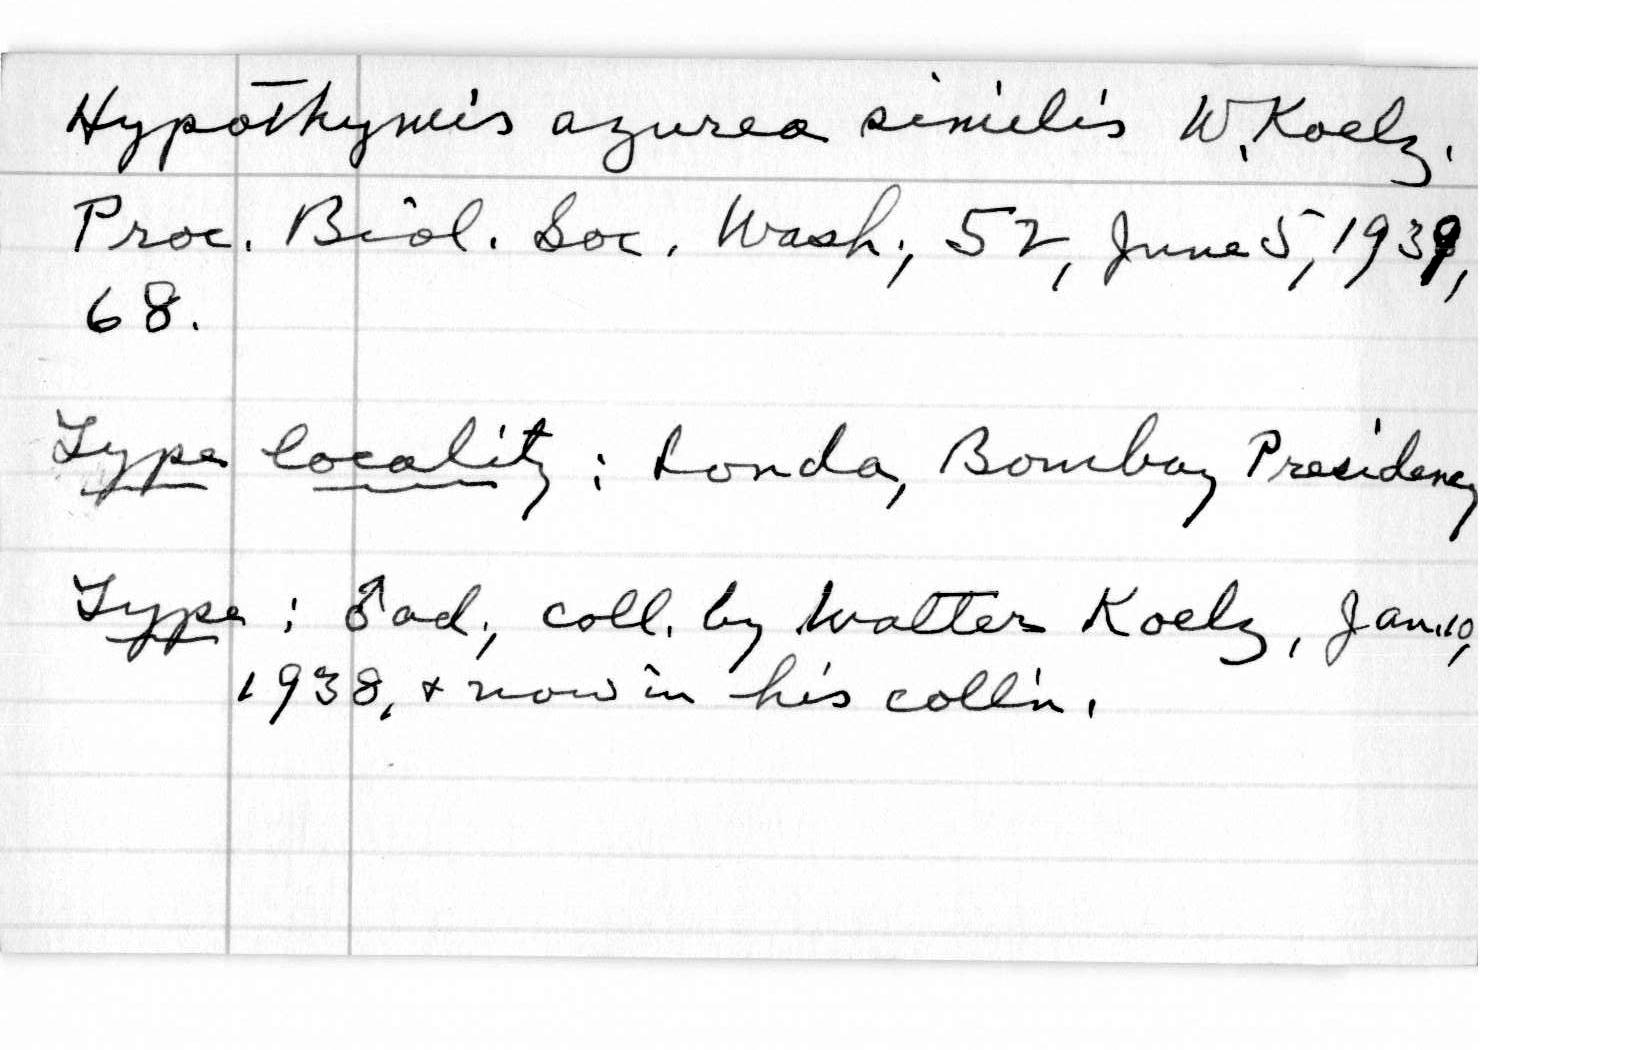 Hypothymis azurea similis W. Koelz.
Proc. Biol. Soc. Wash., 52, June 5, 1939,
68.
Type locality: Londa, Bombay Presidency
Type: ♂ ad., coll. by Walter Koelz, Jan. 10,
1938, & now in his coll'n.